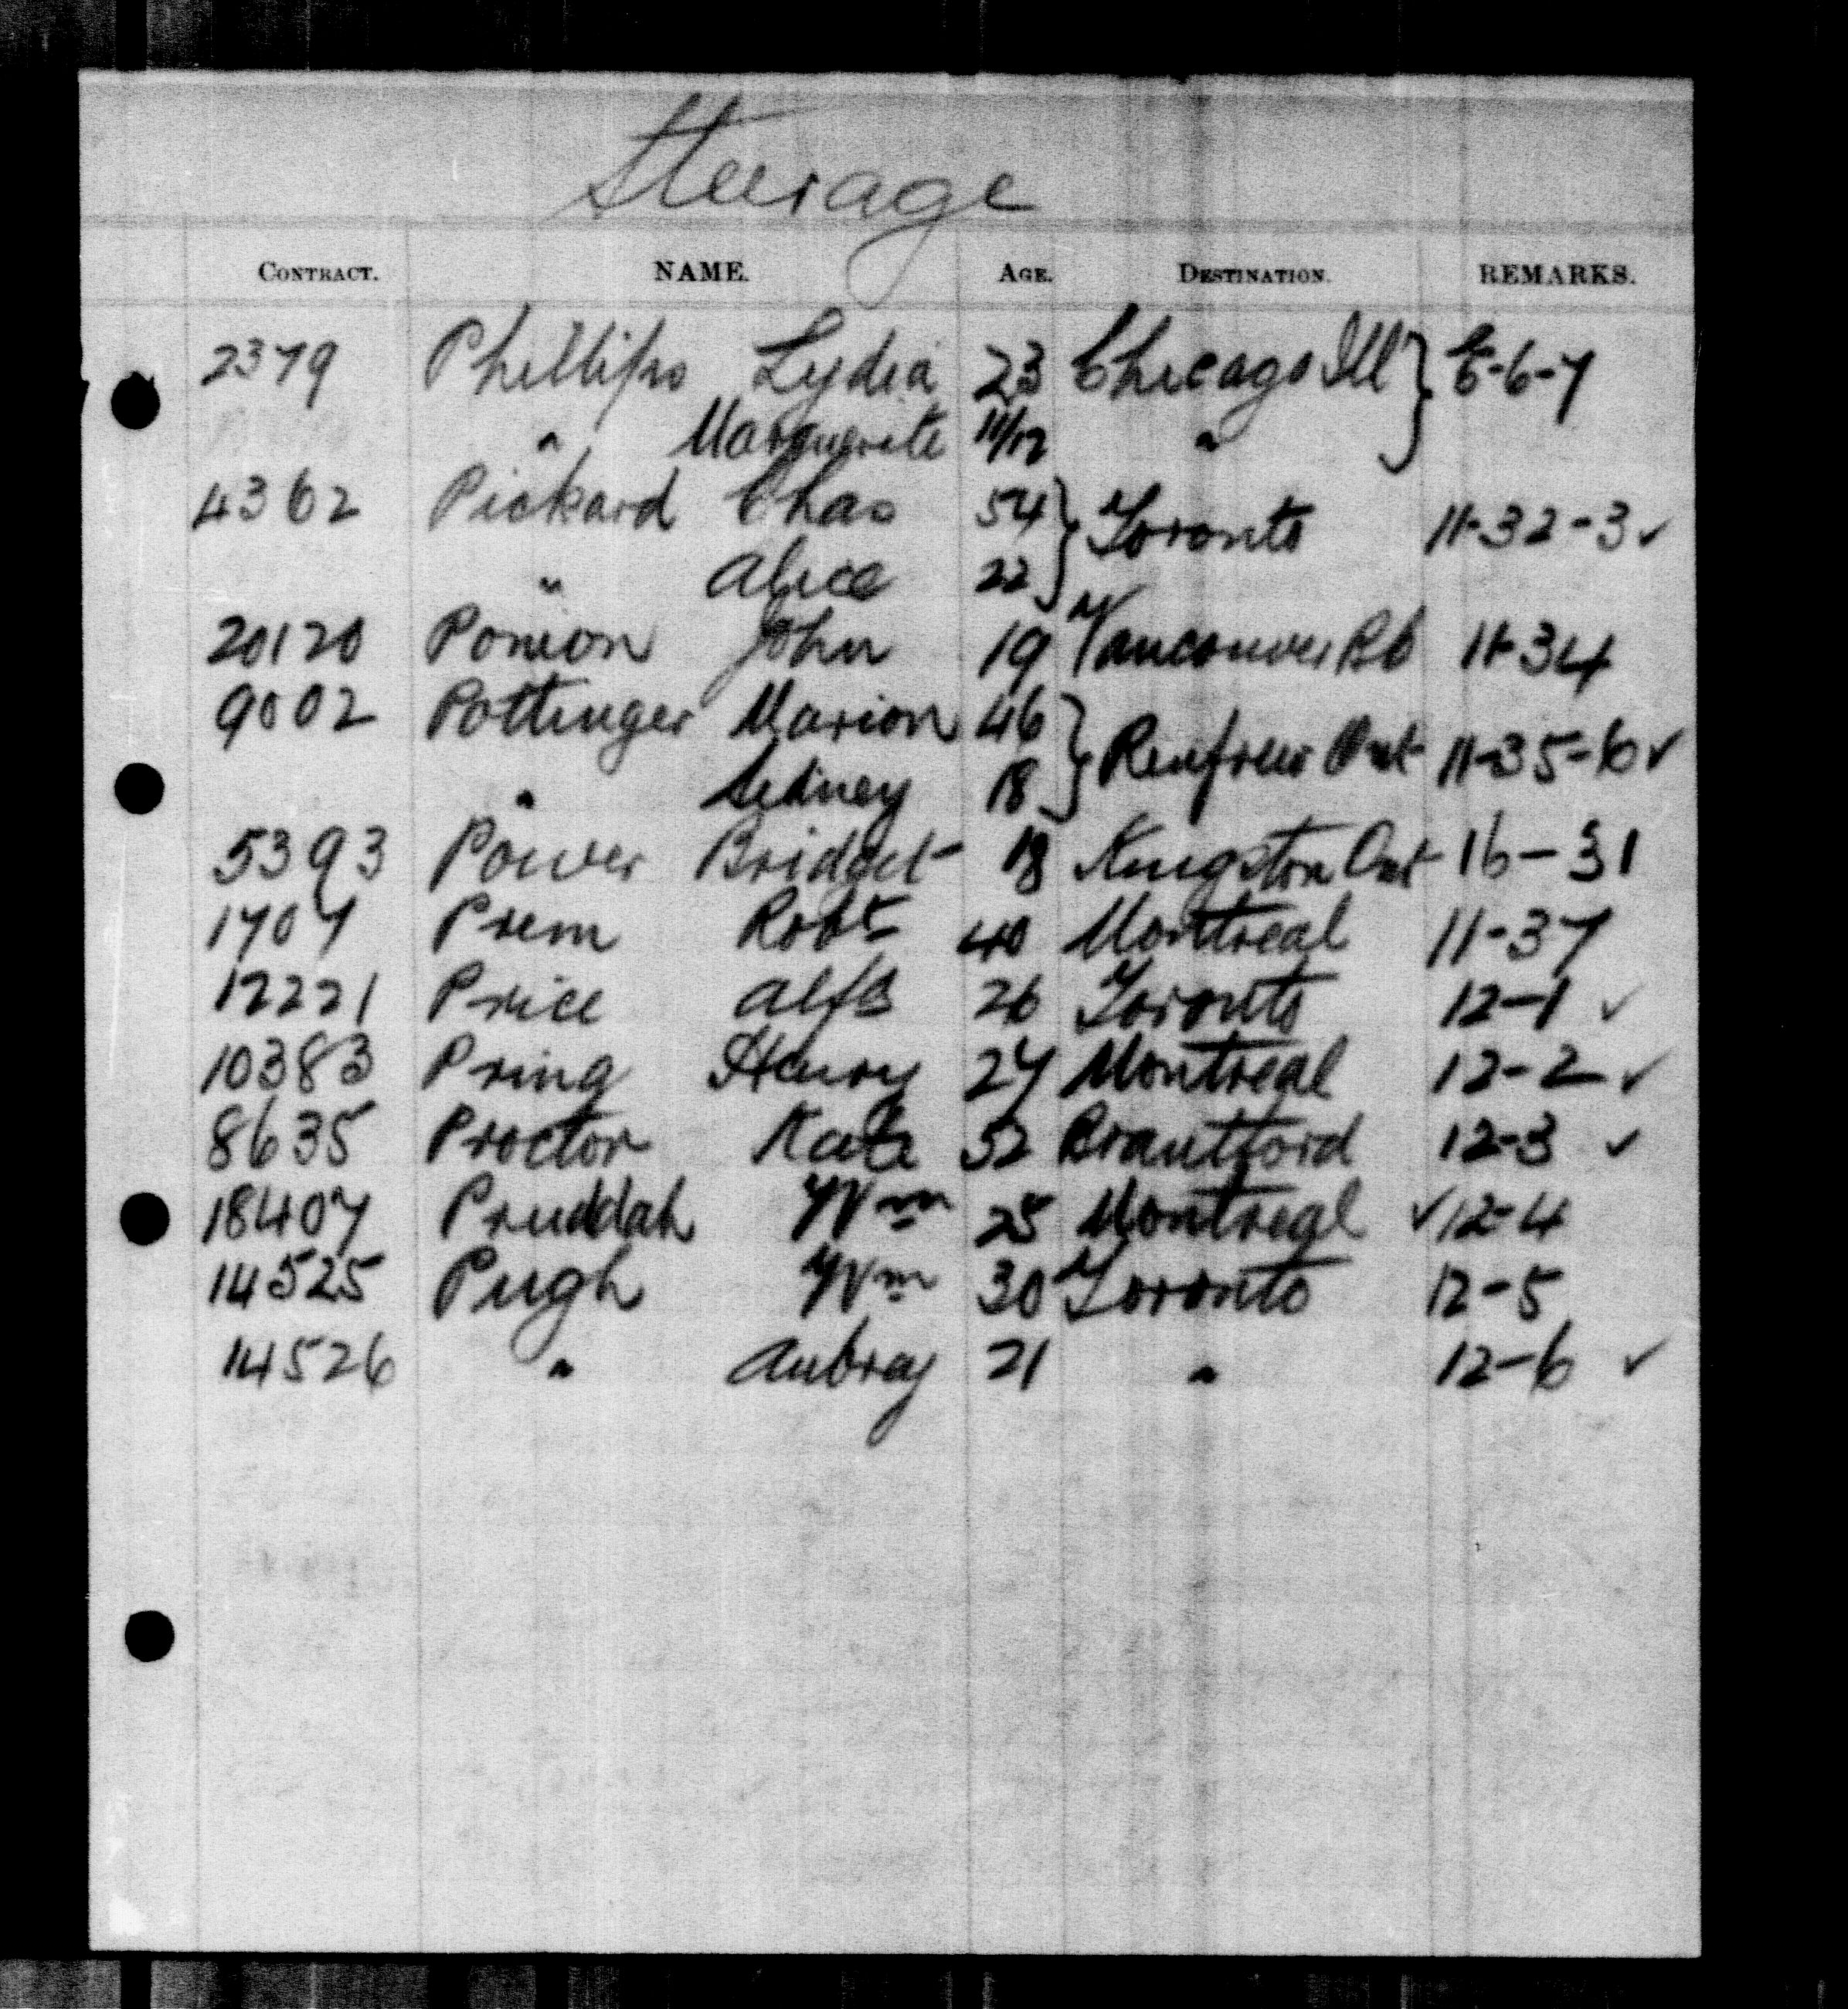 Steerage
CONTRACT. NAME. AGE. DESTINATION. REMARKS.
2379 Phillips Lydia 23 Chicago Ill } E-6-7
" Marguerite 11/12 "
4362 Pickard Chas 54 } Toronto 11-32-3 ✓
" Alice 22
20120 John 19 Vancouver BC 11-34
9002 Pottinger Marion 46 } Renfrew Ont 11-35-6 ✓
" Sidney 18
5393 Power Bridget 18 Kingston Ont 16-31
1707 Prem Robt 40 Montreal 11-37
12221 Price Alfd 26 Toronto 12-1 ✓
10383 Pring Henry 27 Montreal 12-2 ✓
8635 Proctor Kate 32 Brantford 12-3 ✓
18407 Pruddah Wm 25 Montreal ✓ 12-4
14525 Pugh Wm 30 Toronto 12-5
14526 " Aubrey 21 " 12-6 ✓